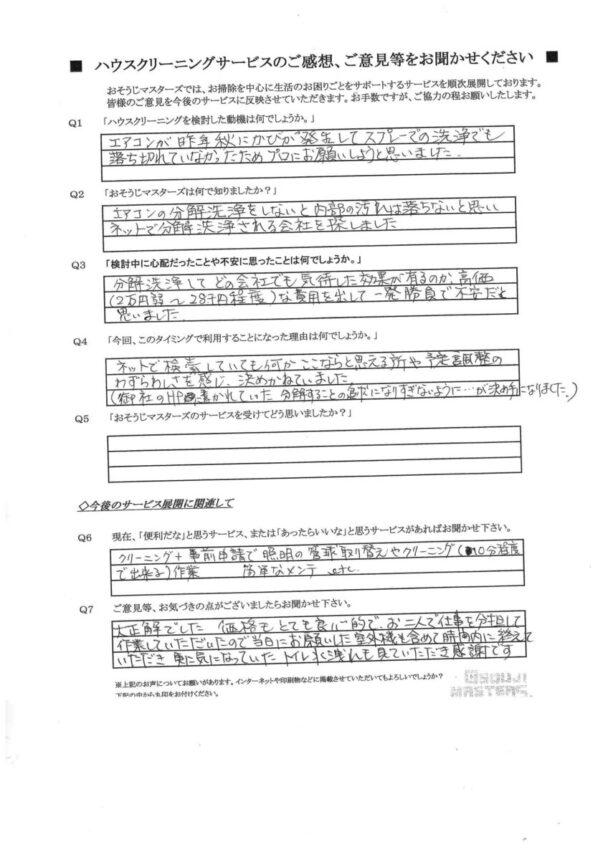 ■ ハウスクリーニングサービスのご感想、ご意見等をお聞かせください ■
おそうじマスターズでは、お掃除を中心に生活のお困りごとをサポートするサービスを順次展開しております。
皆様のご意見を今後のサービスに反映させていただきます。お手数ですが、ご協力の程お願いしたします。
Q1 「ハウスクリーニングを検討した動機は何でしょうか。」
エアコンが昨年秋にかびが発生してスプレーでの洗浄でも
落ち切れていなかったためプロにお願いしようと思いました.
Q2 「おそうじマスターズは何で知りましたか？」
エアコンの分解洗浄をしないと内部の汚れは落ちないと思い
ネットで分解洗浄される会社を探しました
Q3 「検討中に心配だったことや不安に思ったことは何でしょうか。」
分解洗浄してどの会社でも気待した効果が有るのか、高価
(2万円弱〜28千円程度)な費用を出して一発勝負で不安だと
思いました.
Q4 「今回、このタイミングで利用することになった理由は何でしょうか。」
ネットで検索していても何かここならと思える所や予定調整の
わずらわしさを感じ、決めかねていました
(御社のHPに書かれていた 分解することの急だになりすぎないように…が決め手になりました.)
Q5 「おそうじマスターズのサービスを受けてどう思いましたか？」
◇今後のサービス展開に関連して
Q6 現在、「便利だな」と思うサービス、または「あったらいいな」と思うサービスがあればお聞かせ下さい。
クリーニング+事前申請で照明の管球取り替えやクリーニング(10分程度
で出来る)作業 簡単なメンテ etc.
Q7 ご意見等、お気づきの点がございましたらお聞かせ下さい。
大正解でした 価格もとても良心的で、お二人で仕事を分担して
作業していただいたので当日にお願いした室外機も含めて時間内に終えて
いただき 更に気になっていた トイレ水洩れも見ていただき感謝です
※上記のお声についてお願いがあります。インターネットや印刷物などに掲載させていただいてもよろしいでしょうか？
下記の中から丸印をお付けください。